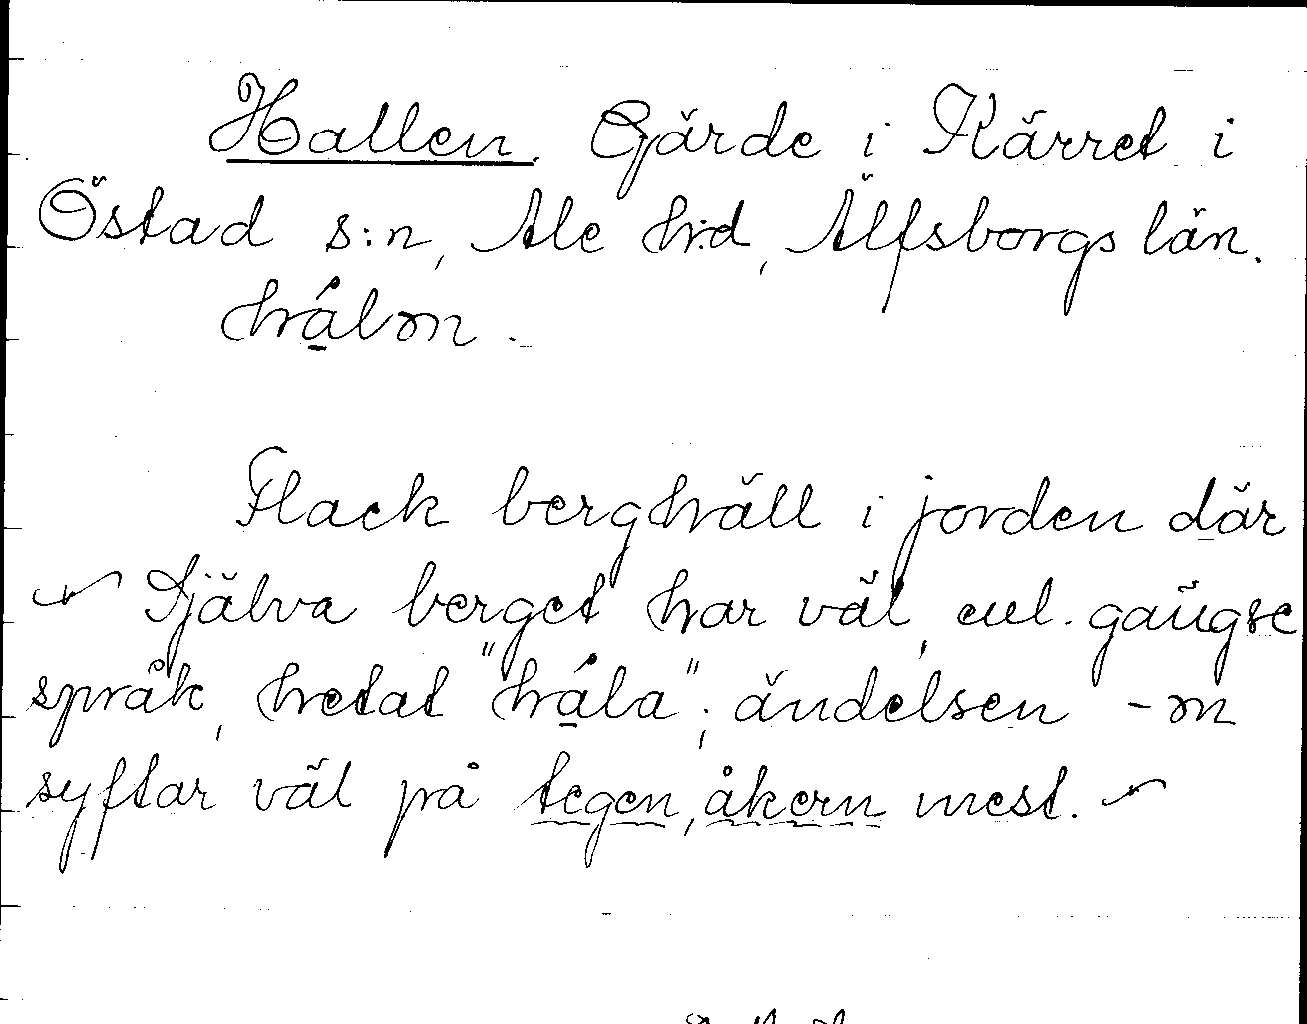 Hallen. Gärde i Kärret i
Östad s:n, Ale hd, Älfsborgs län.
hálọn.
Flack berghäll i jorden där
~ Själva berget har väl, enl. gängse
språk, hetat "hála"; ändelsen -ọn
syftar väl på tegen, åkern mest. ~